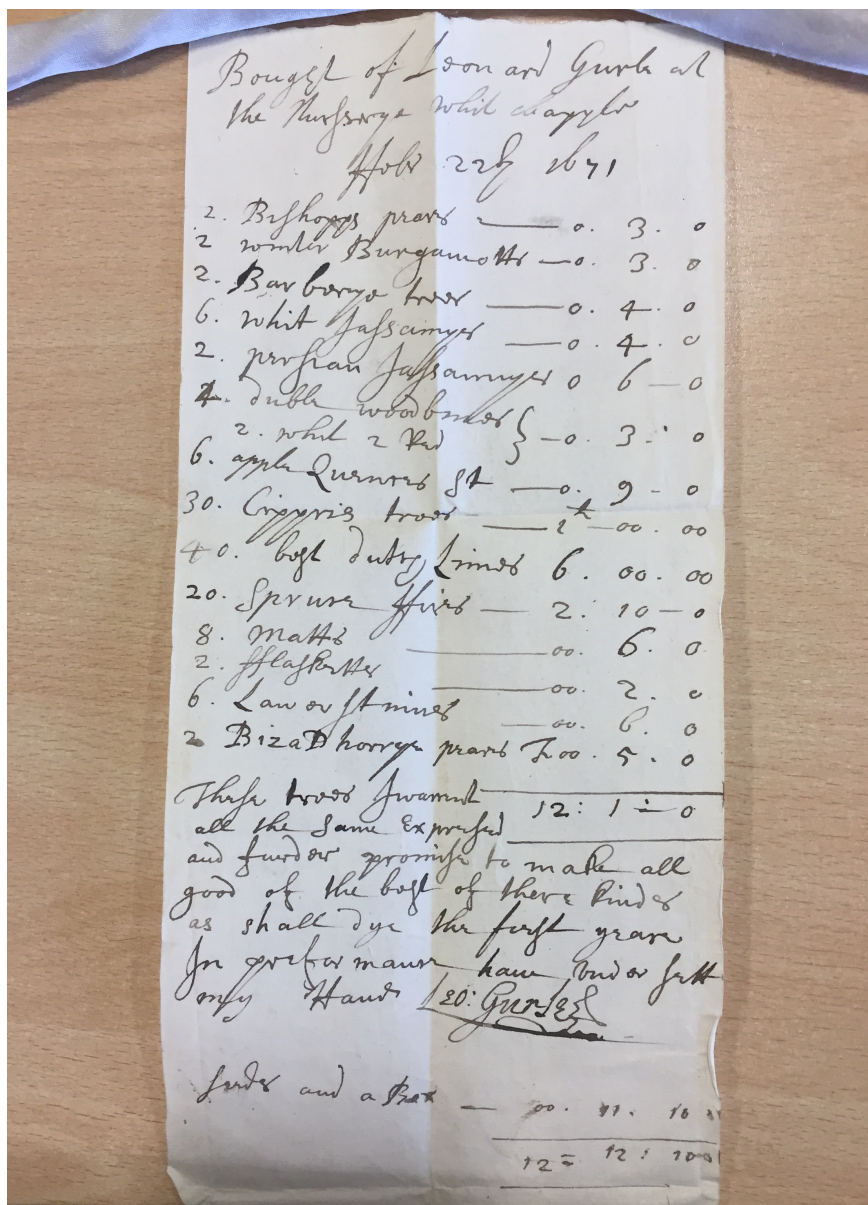 Bought of Leonard Gurle at
the Nursserye whit chapple
ffebr 22th 1671
2. Bishopps peares — 0. 3. 0
2 winter Burgamotts — 0. 3. 0
2. Barberye trees — 0. 4. 0
6. whit Jassamyes — 0. 4. 0
2. persian Jassamyes 0 6 — 0
4. duble woodbines
2. whit 2 Red } — 0. 3. 0
6. apple Quences St — 0. 9 - 0
30. Cippris trees — 1 — 00. 00
40. best dutch Limes 6. 00. 00
20. Spruse ffires — 2: 10 — 0
8. Matts — 00. 6. 0
2. fflasketts — 00. 2. 0
6. Lawrstines — 00. 6. 0
2 BizaDhorrye peares 00. 5. 0
These trees I warrant 12: 1 - 0
all the same Expressed
and furder promise to make all
good of the best of there kindes
as shall dye the first yeare
In performance have under sett
my Hand Leo: Gurle
seedes and a Box — 00. 11. 10
12 = 12: 10